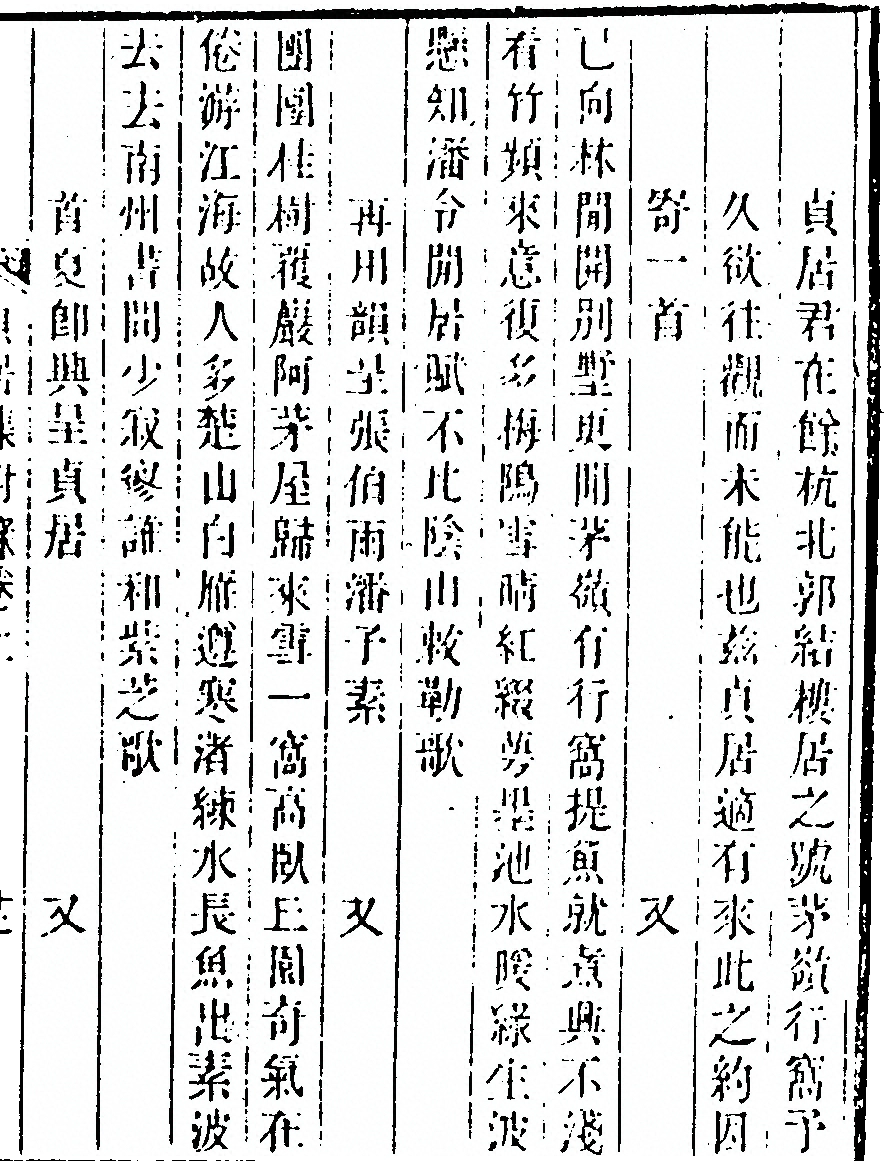 貞居君在餘杭北郭結樓居之號茅嶺行窩予
久欲往觀而未能也茲貞居適有來此之約因
寄一首 又
已向林間開別墅更聞茅嶺有行窩提魚就煮興不淺
看竹頻來意復多梅隝雪晴紅綴萼墨池水暖綠生波
懸知潘令閒居賦不比陰山敕勒歌
再用韻呈張伯雨潘子素 又
團團桂樹覆巖阿茅屋歸來雪一窩高臥丘園奇氣在
倦游江海故人多楚山白雁遵寒渚練水長魚出素波
去去南州書問少寂寥誰和紫芝歌
首夏即興呈貞居 又